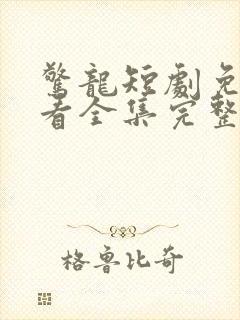 驚龍短劇免
看全集完整
格魯比奇